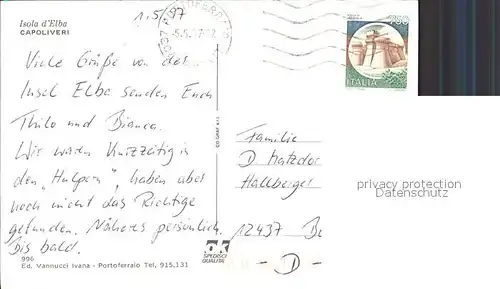 Isola d'Elba
CAPOLIVERI
1.5.97
Viele Grüße von der
Insel Elba senden Euch
Thilo und Bianca.
Wir waren kurzzeitig in
den „Hulpern“, haben aber
noch nicht das Richtige
gefunden. Näheres persönlich.
Bis bald.
996
Ed. Vannucci Ivana - Portoferraio Tel. 915.131
SPEDISCI
QUALITÀ
750
ITALIA
PORTOFERRAIO
5.5.97
Familie
D
Hallberger
12437
- D -
privacy protection
Datenschutz